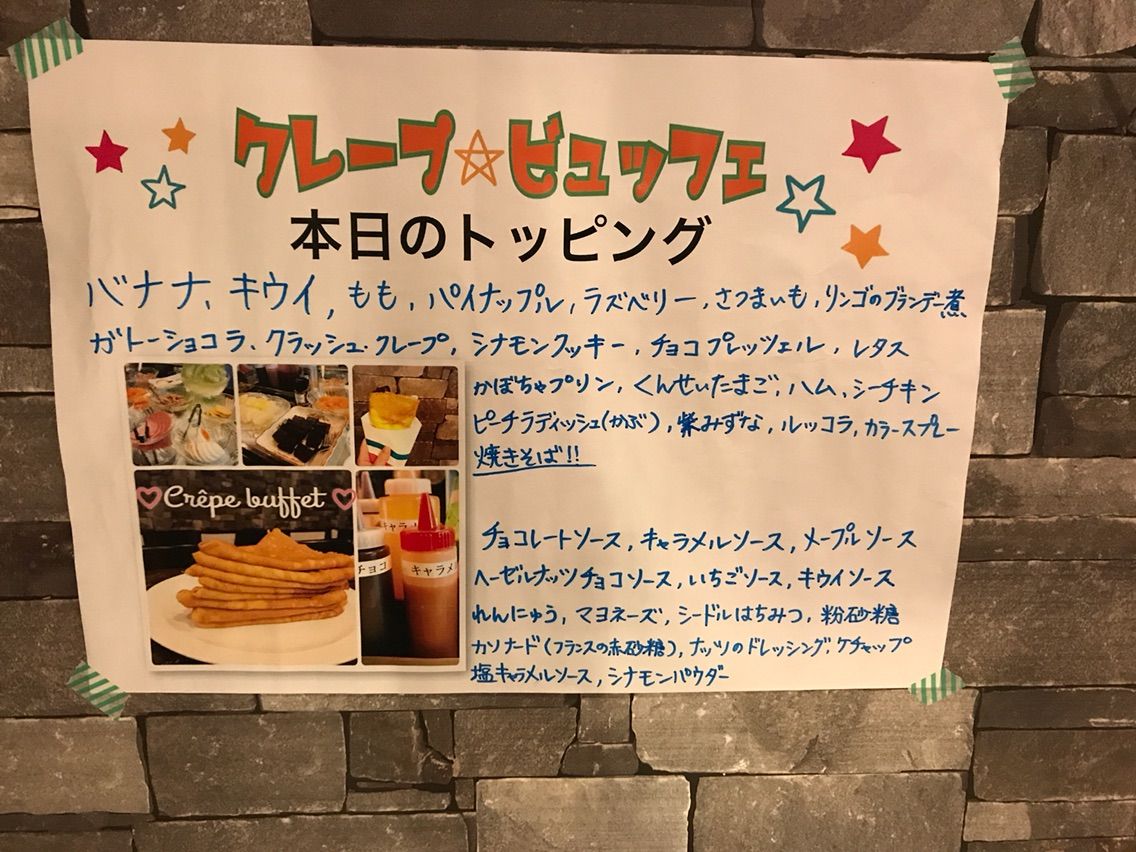 クレープ☆ビュッフェ
本日のトッピング
バナナ、キウイ, もも, パイナップル, ラズベリー, さつまいも, リンゴのブランデー煮
ガトーショコラ、クラッシュ・クレープ, シナモンクッキー, チョコプレッツェル, レタス
かぼちゃプリン, くんせいたまご, ハム, シーチキン
ピーチラディッシュ(かぶ), 紫みずな, ルッコラ, カラースプレー
焼きそば!!
Crêpe buffet
キャラメ
チョコ
キャラメ
チョコレートソース, キャラメルソース, メープルソース
ヘーゼルナッツチョコソース, いちごソース, キウイソース
れんにゅう, マヨネーズ, シードルはちみつ, 粉砂糖
カソナード(フランスの赤砂糖), ナッツのドレッシング, ケチャップ
塩キャラメルソース, シナモンパウダー